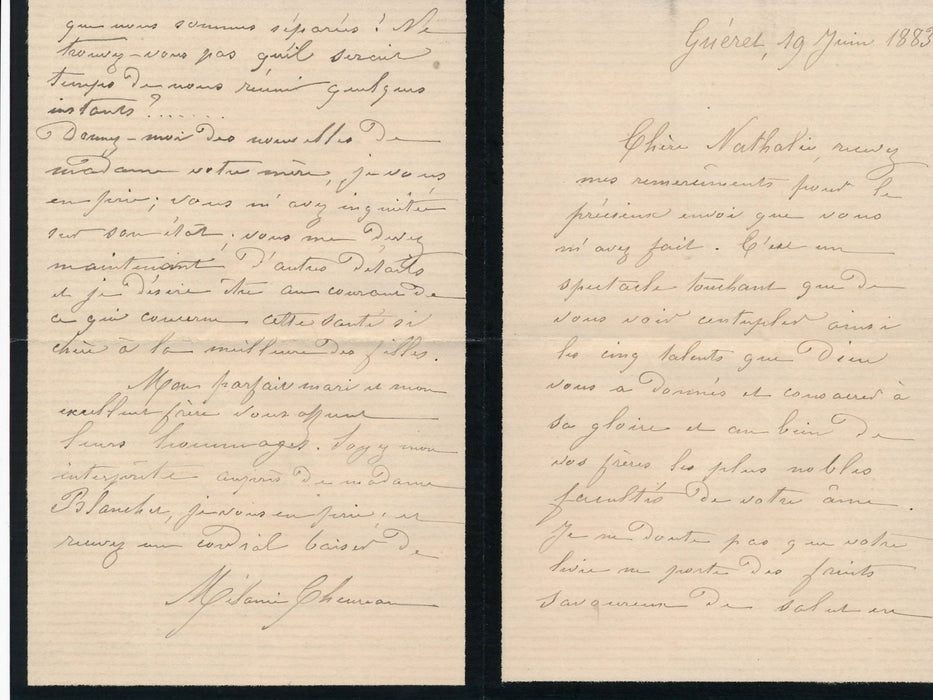 que nous sommes séparées ! Ne
trouvez-vous pas qu'il serait
temps de nous réunir quelques
instants ? . . . . . .
Donnez-moi des nouvelles de
madame votre mère, je vous
en prie ; vous m'avez inquiétée
sur son état ; vous me devez
maintenant d'autres détails
et je désire être au courant de
ce qui concerne cette santé si
chère à la meilleure des filles.
Mon parfait mari et mon
excellent frère vous offrent
leurs hommages. Soyez mon
interprète auprès de madame
Blanchet, je vous en prie ; et
recevez un cordial baiser de
Mélanie
Guéret, 19 Juin 1883
Chère Nathalie, recevez
mes remerciments pour le
précieux envoi que vous
m'avez fait. C'est un
spectacle touchant que de
vous voir centupler ainsi
les cinq talents que Dieu
vous a donnés et consacrer à
sa gloire et au bien de
vos frères les plus nobles
facultés de votre âme.
Je ne doute pas que votre
livre ne porte des fruits
savoureux de salut en